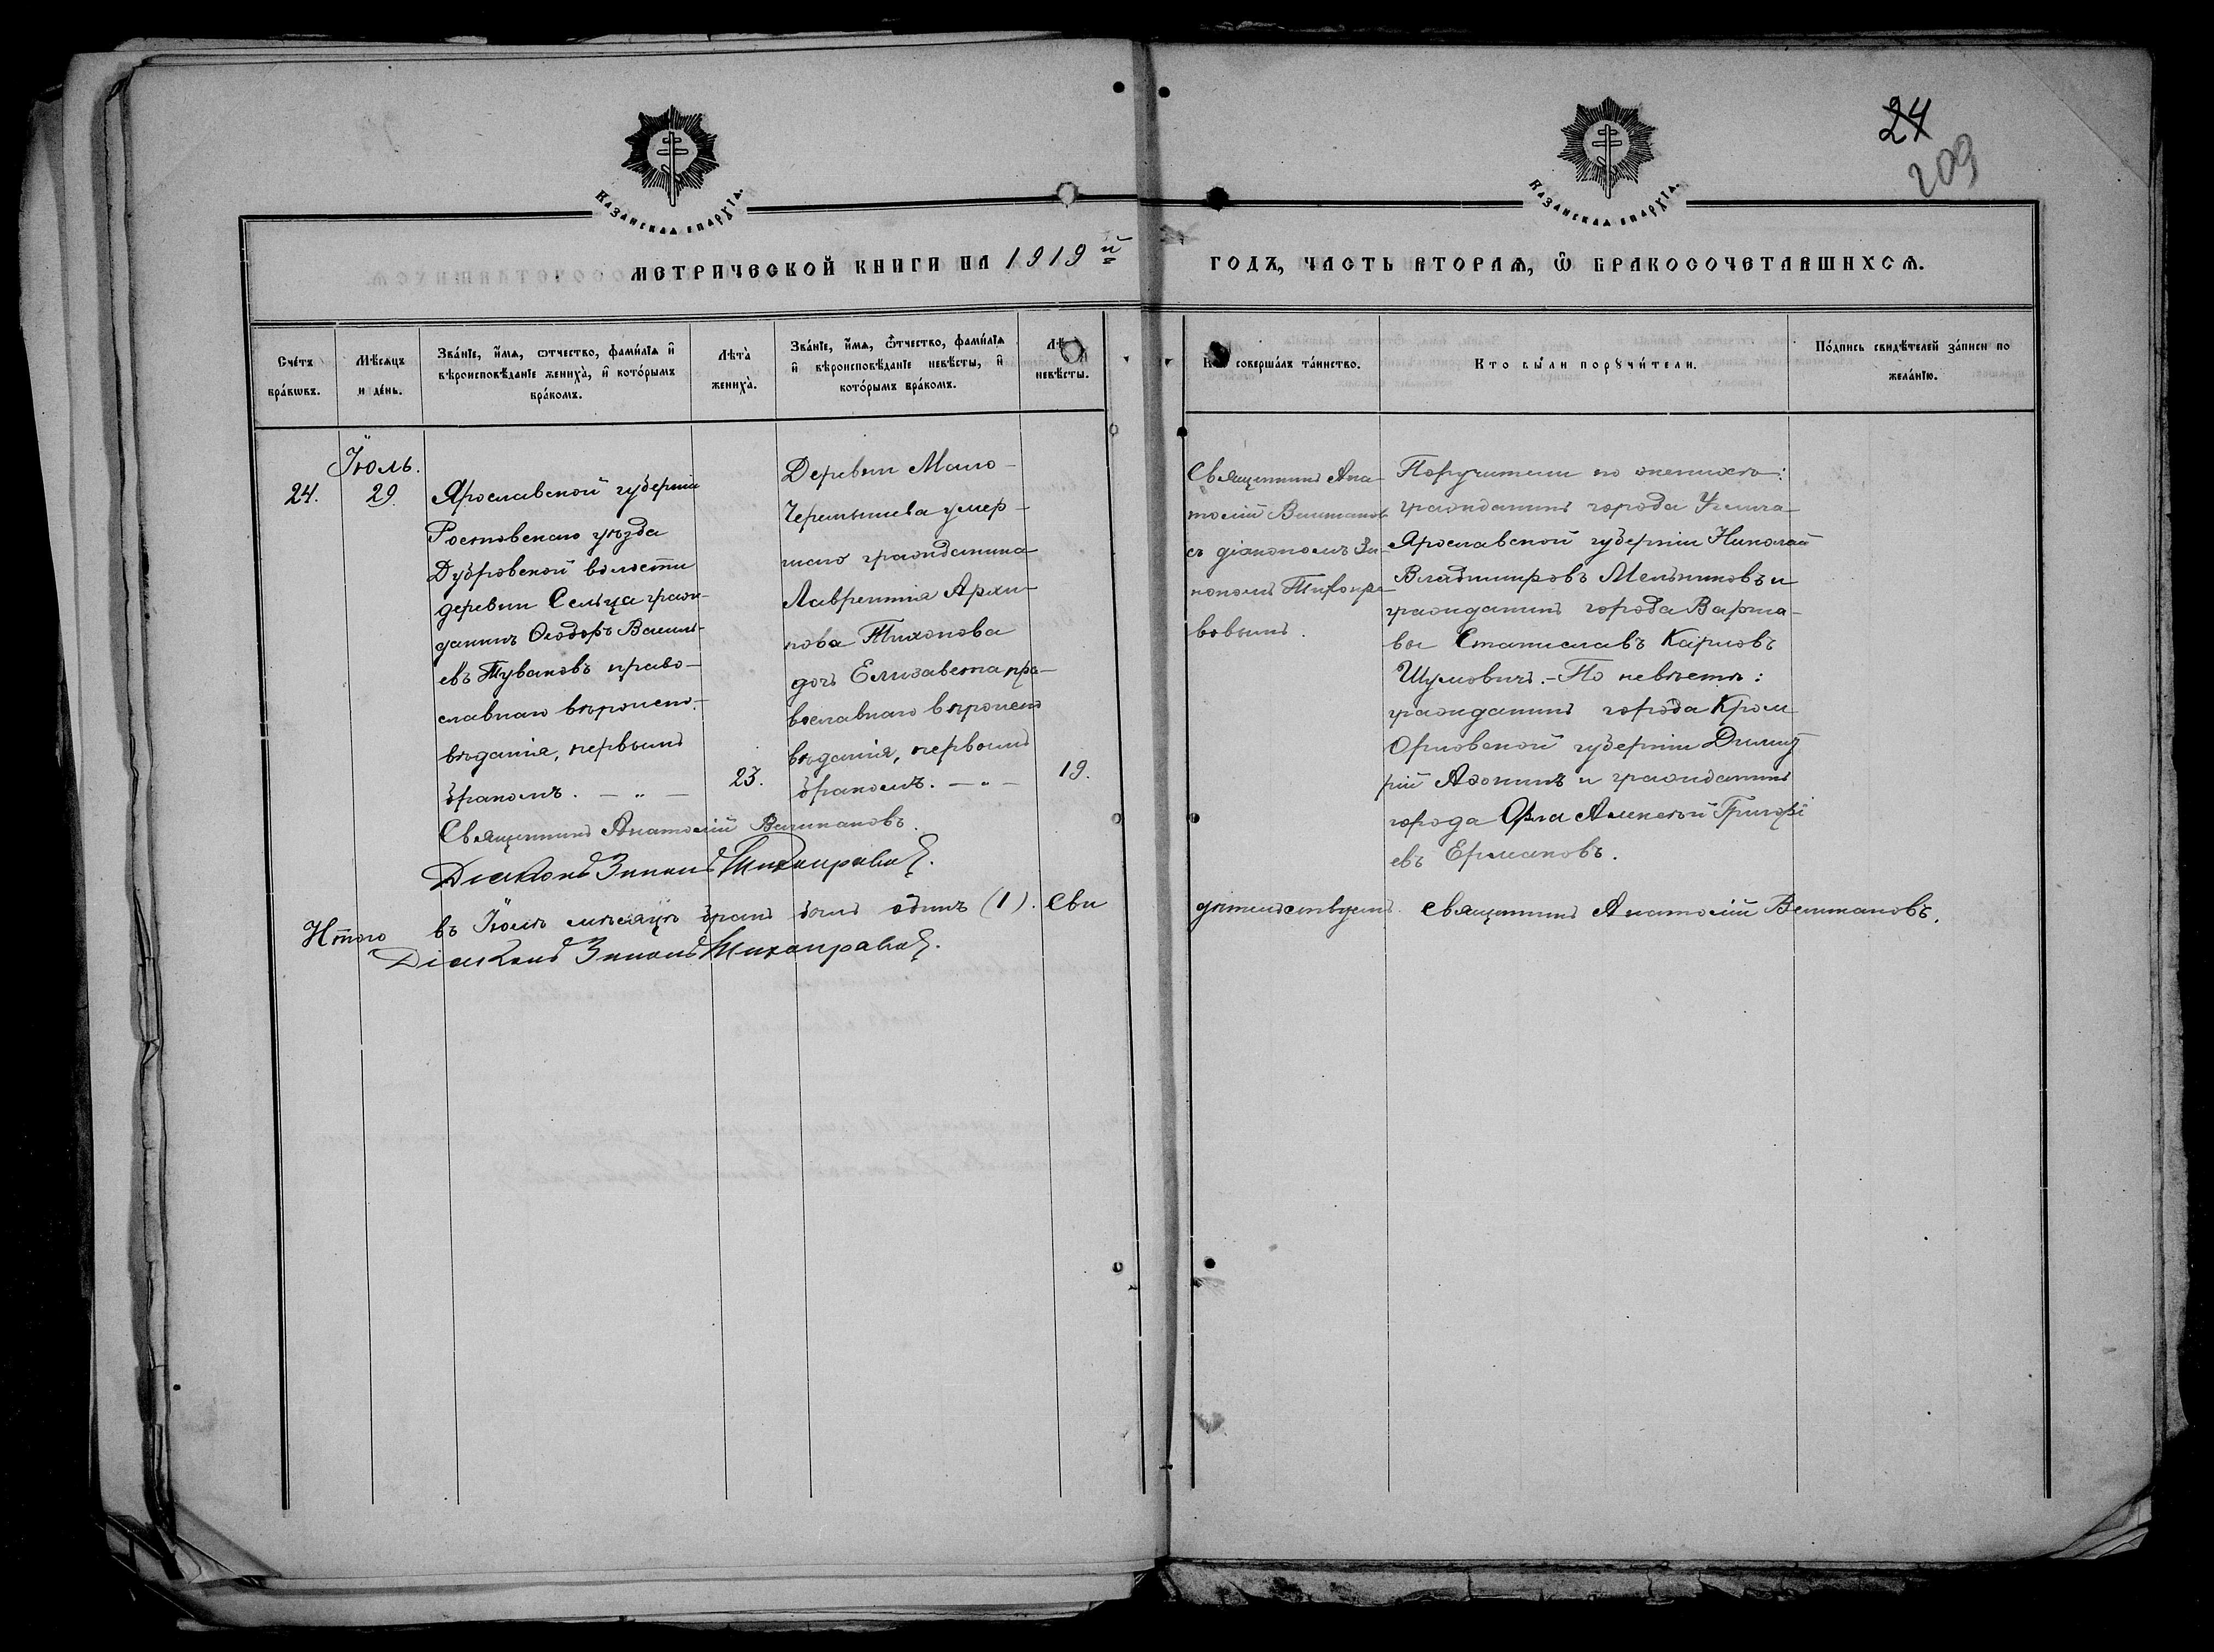 24
209
КАЗАНСКАЯ ЕПАРХІА.
КАЗАНСКАЯ ЕПАРХІА.
МЕТРИЧЕСКОЙ КНИГИ НА 1919й
ГОДЪ, ЧАСТЬ ВТОРАѦ, Ѡ БРАКОСОЧЕТАВШИХСѦ.
Сче́тъ бра́кѡвъ.
Мѣ́сѧцъ и де́нь.
Зва́нїе, и҆́мѧ, ѻ҆́тчество, фамі́лїѧ и҆ вѣроисповѣ́данїе жениха̀, и҆ кото́рымъ бра́комъ.
Лѣ́та жениха̀.
Зва́нїе, и҆́мѧ, ѻ҆́тчество, фамі́лїѧ и҆ вѣроисповѣ́данїе невѣ́сты, и҆ кото́рымъ бра́комъ.
невѣ́сты.
соверша́лъ та́инство.
Кто бы́ли порꙋчи́тели.
По́дпись свидѣ́телей за́писи по жела́нїю.
Іюль.
24.
29.
Ярославской губерніи
Ростовскаго уѣзда
Дубровской волости
деревни Сельца граж-
данинъ Ѳеодоръ Василь-
евъ Тувановъ право-
славнаго вѣроиспо-
вѣданія, первымъ
бракомъ. — „ —
23.
Деревни Мало-
Черемышева умер-
шаго гражданина
Лаврентія Архи-
пова Тихонова
дочь Елизавета пра-
вославнаго вѣроиспо
вѣданія, первымъ
бракомъ. — „ —
19.
Священникъ Ана-
толій Вишкановъ
съ діакономъ Зи-
нономъ Тихонра-
вовымъ.
Поручители по женихѣ:
гражданинъ города Углича
Ярославской губерніи Николай
Владиміровъ Мельниковъ и
гражданинъ города Варша-
вы Станиславъ Карловъ
Шумовичъ. - По невѣстѣ:
гражданинъ города Кром
Орловской губерніи Димит
рій Афонинъ и гражданинъ
города Орла Алексѣй Григорі
евъ Ермаковъ.
Священникъ Анатолій Вишкановъ.
Діаконъ Зинонъ Тихонравовъ.
Итого въ Іюлѣ мѣсяцѣ бракъ былъ одинъ (1). Сви
дѣтельствуемъ. Священникъ Анатолій Вишкановъ.
Діаконъ Зинонъ Тихонравовъ.